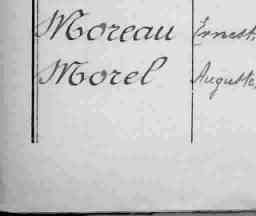 Moreau Ernest
Morel Auguste